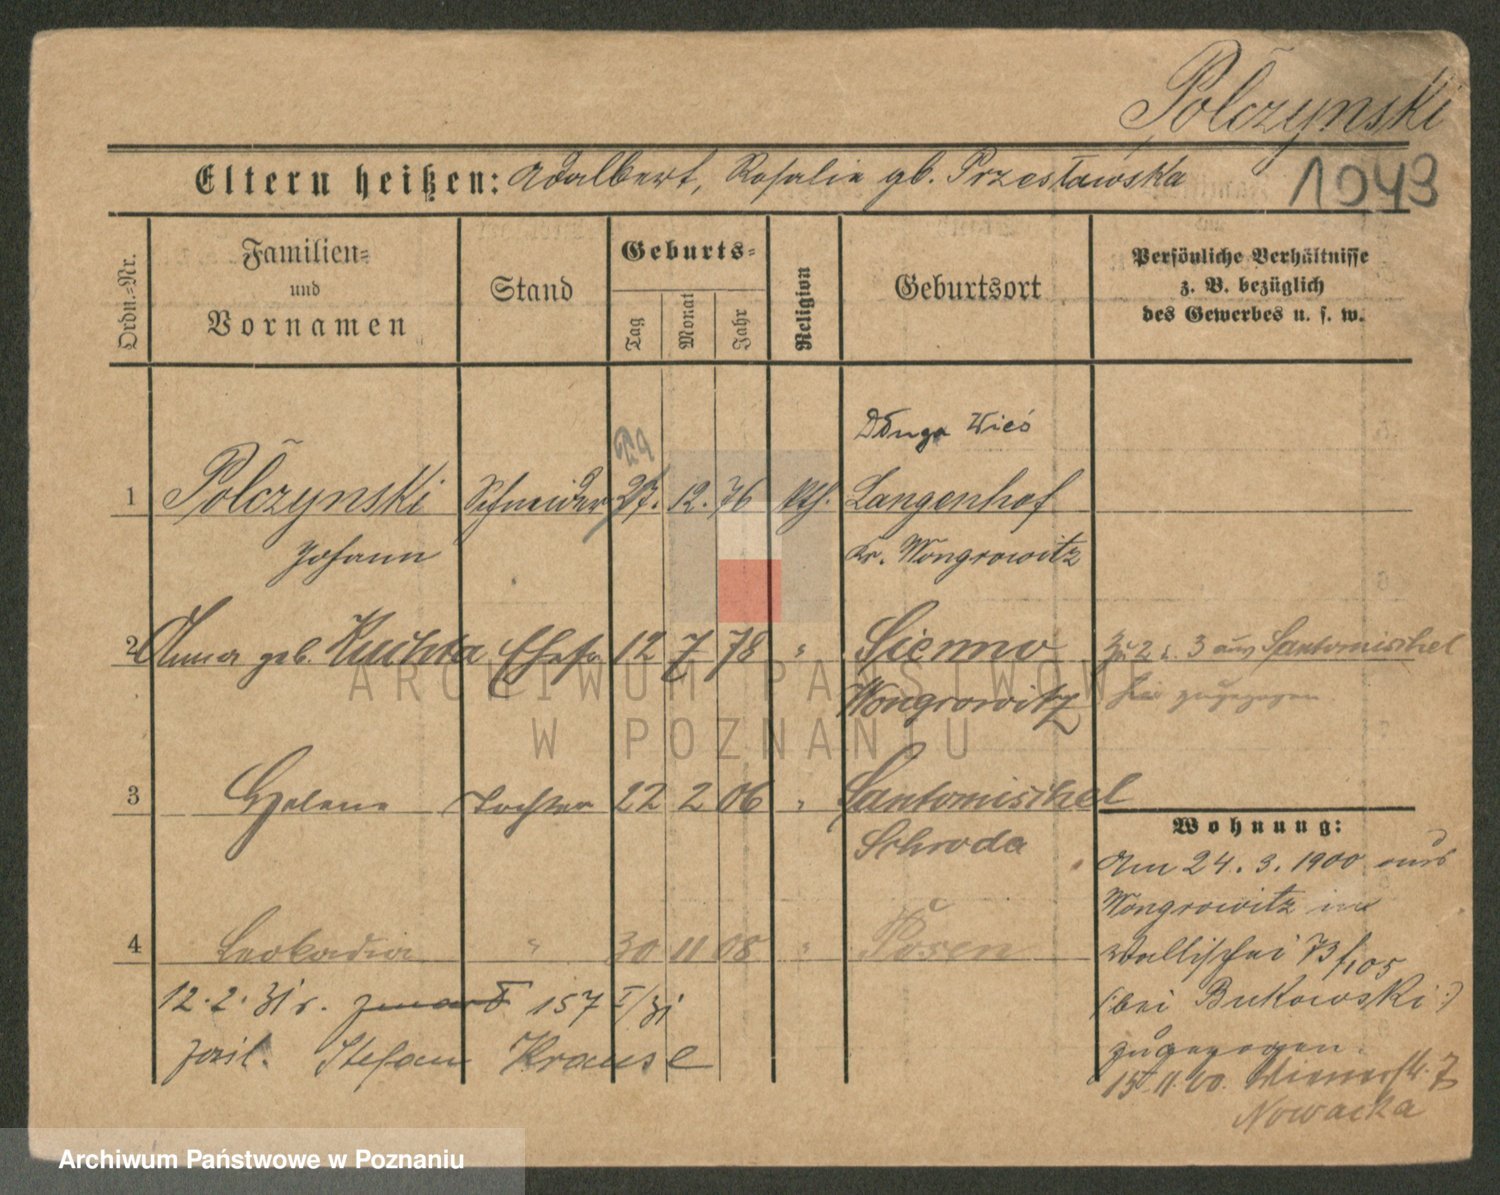 Polczynski
Eltern heißen: Adalbert, Rosalie gb. Przesławska
1043
Ordn.-Nr.
Familien-
und
Vornamen
Stand
Geburts-
Tag
Monat
Jahr
Religion
Geburtsort
Persönliche Verhältnisse
z. B. bezüglich
des Gewerbes u. s. w.
Długa Wieś
1 Polczynski Schneider 27. 12. 76 kth. Langenhof
Johann Kr. Wongrowitz
2 Anna geb. Kuchta Ehefr 12 7 78 " Sienno
Wongrowitz
Zu 2 u. 3 aus Santomischel
hier zugezogen
3 Helene Tochter 22 2 06 " Santomischel
Schroda
4 Leokadia " 30 11 08 " Posen
12.2.31 r. zmarł 157 I/31
Stefan Krause
Wohnung:
Am 24.3.1900 aus
Wongrowitz in
Wallischei 73
(bei Bukowski:)
zugezogen.
15.11.00. Wienerstr. 7
Nowacka
ARCHIWUM PAŃSTWOWE
W POZNANIU
Archiwum Państwowe w Poznaniu